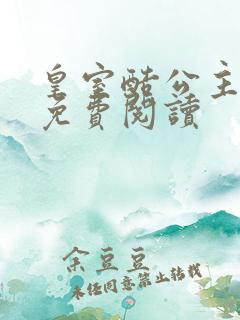 皇室酷公主
免費閱讀
余豆豆
未经同意禁止转载